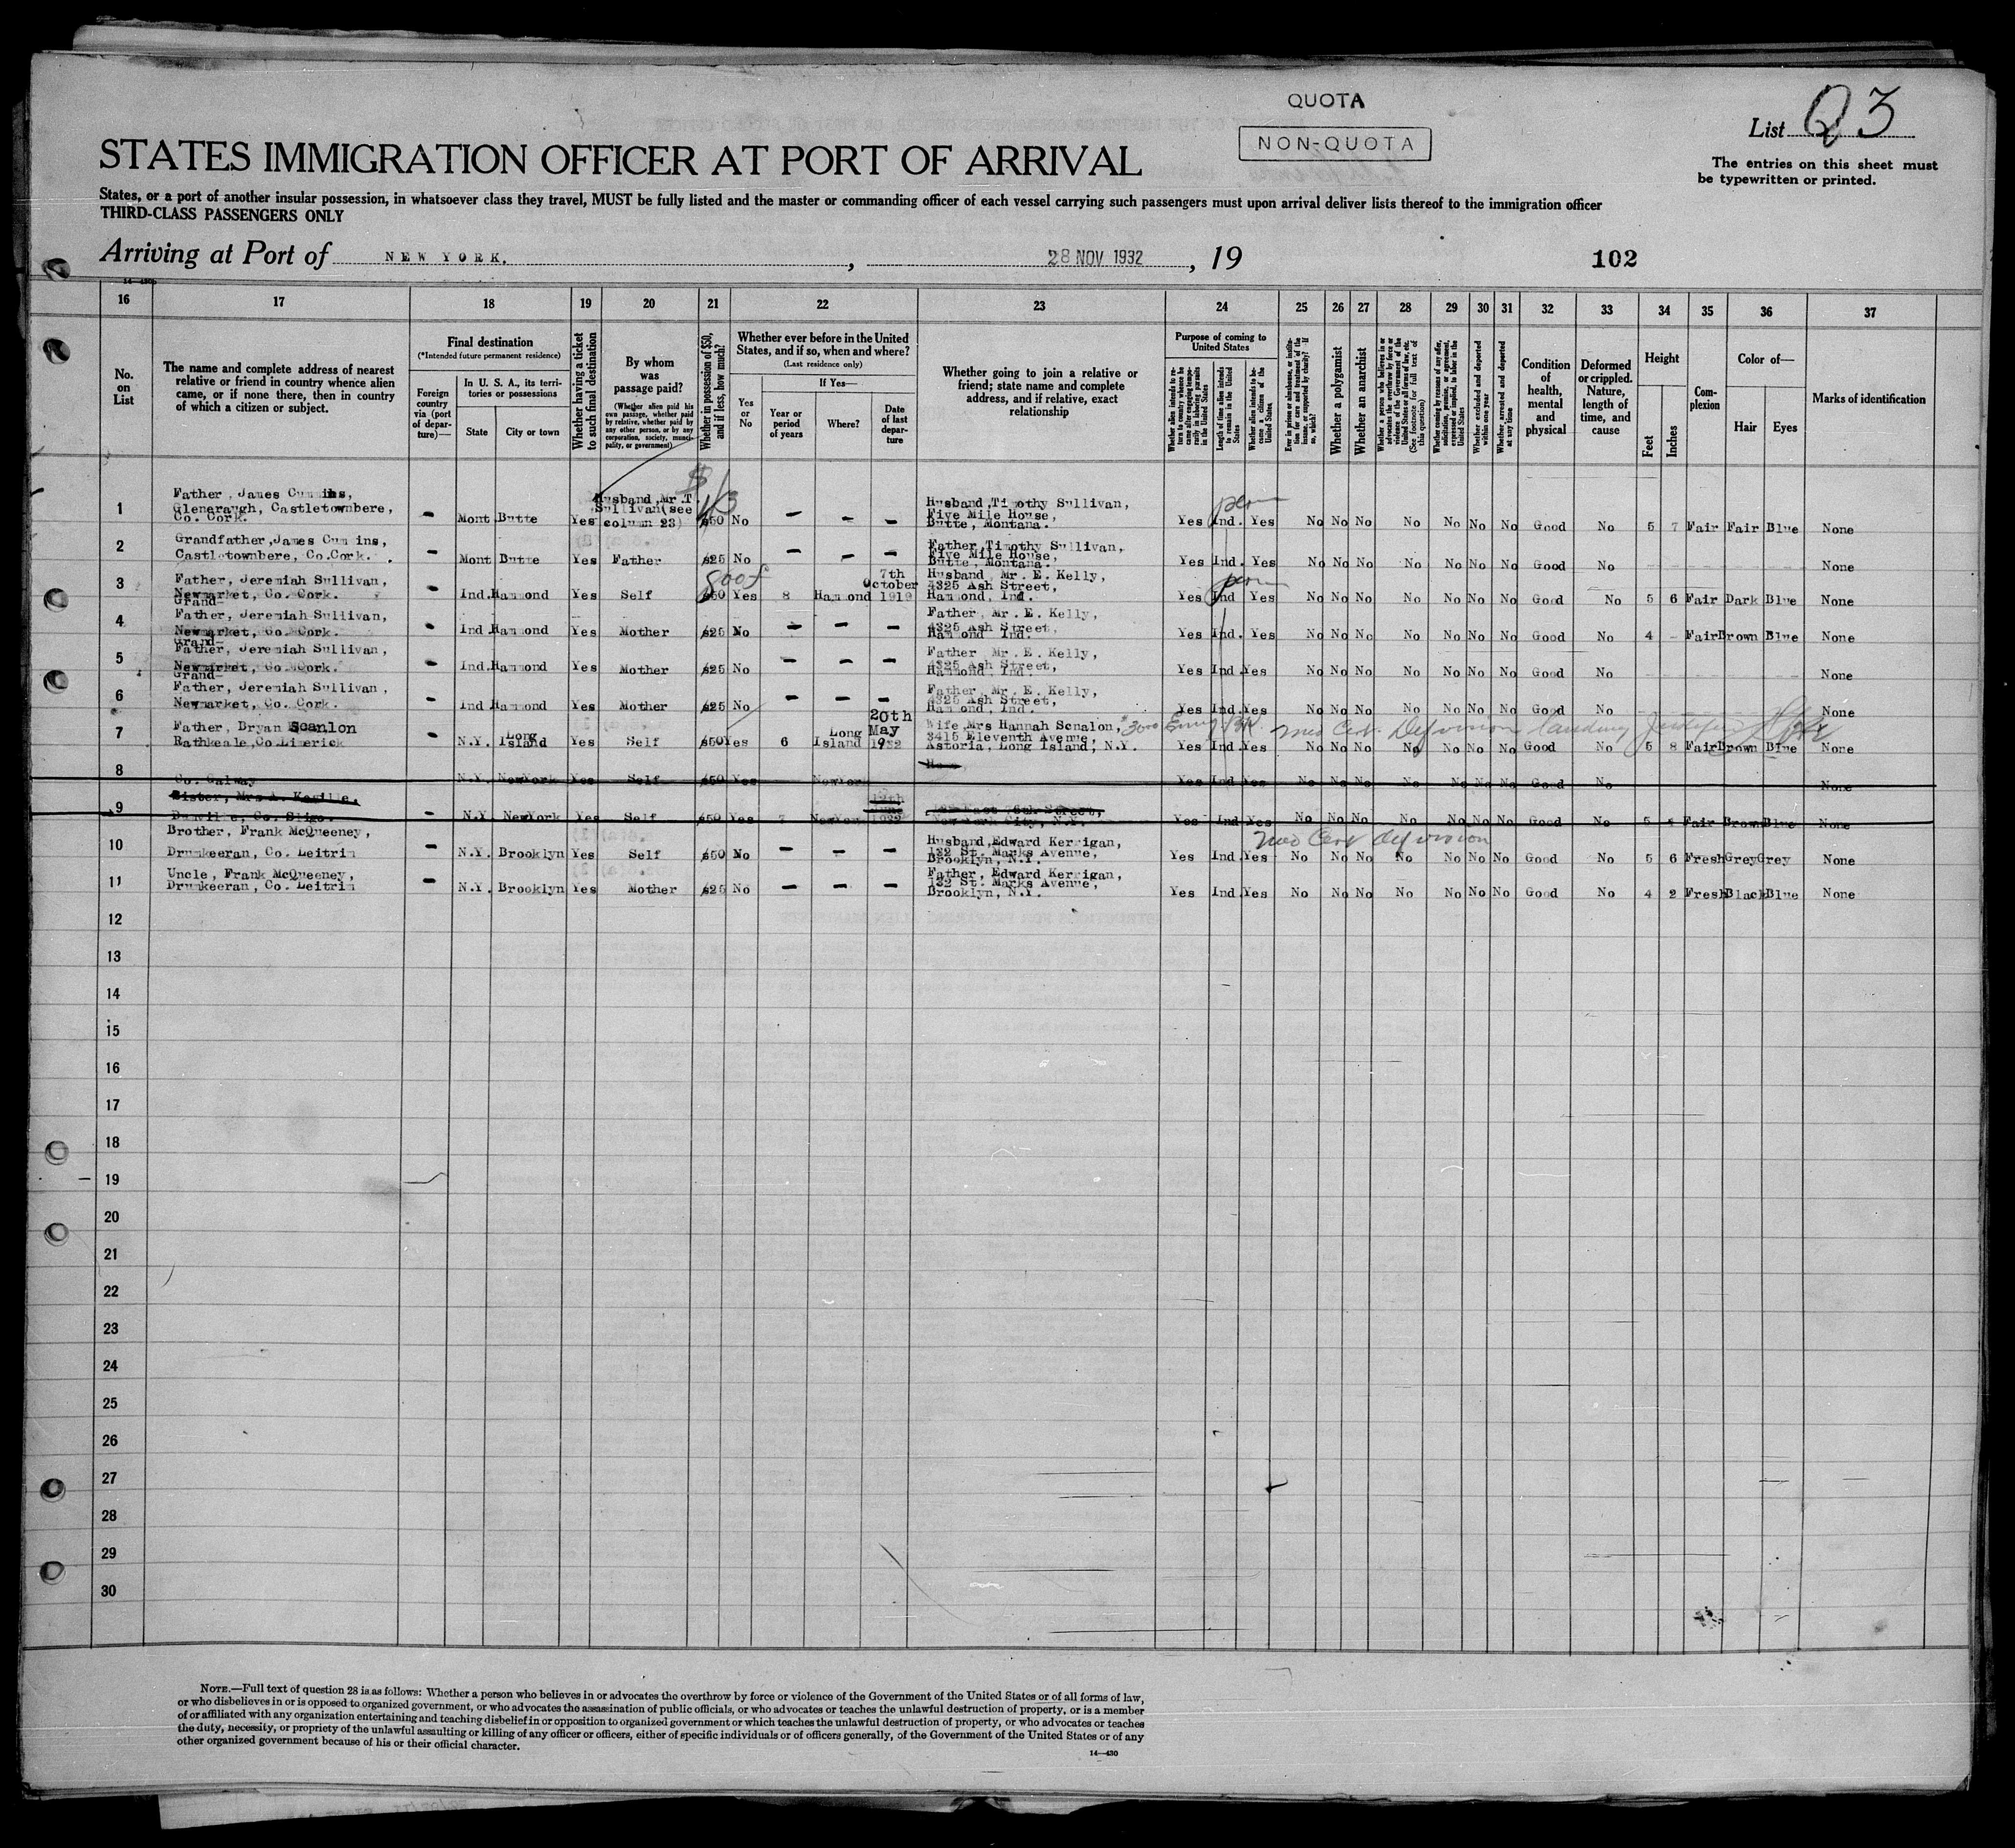 QUOTA
NON-QUOTA
List Q3
STATES IMMIGRATION OFFICER AT PORT OF ARRIVAL
The entries on this sheet must
be typewritten or printed.
States, or a port of another insular possession, in whatsoever class they travel, MUST be fully listed and the master or commanding officer of each vessel carrying such passengers must upon arrival deliver lists thereof to the immigration officer
THIRD-CLASS PASSENGERS ONLY
Arriving at Port of NEW YORK. , 28 NOV 1932 , 19
102
16 17 18 19 20 21 22 23 24 25 26 27 28 29 30 31 32 33 34 35 36 37
No. on List
The name and complete address of nearest relative or friend in country whence alien came, or if none there, then in country of which a citizen or subject.
Final destination
(*Intended future permanent residence)
Foreign country via (port of departure)—
In U. S. A., its territories or possessions
State
City or town
Whether having a ticket to such final destination
By whom was passage paid?
(Whether alien paid his own passage, whether paid by relative, whether paid by any other person, or by any corporation, society, municipality, or government)
Whether in possession of $50, and if less, how much?
Whether ever before in the United States, and if so, when and where?
(Last residence only)
Yes or No
If Yes—
Year or period of years
Where?
Date of last departure
Whether going to join a relative or friend; state name and complete address, and if relative, exact relationship
Purpose of coming to United States
Length of time alien intends to remain in the United States
Whether alien intends to become a citizen of the United States
Whether a polygamist
Whether an anarchist
(See footnote for full text of this question)
Whether excluded and deported within one year
Whether arrested and deported at any time
Condition of health, mental and physical
Deformed or crippled. Nature, length of time, and cause
Height
Feet
Inches
Complexion
Color of—
Hair
Eyes
Marks of identification
1 Father, James Cummins, Castletownbere, Co. Cork. - Mont Butte Yes Husband, Mr. T. Sullivan (see column 23) $50 No - - - Husband, Timothy Sullivan, Five Mile House, Butte, Montana. Yes Ind. Yes No No No No No No No Good No 5 7 Fair Fair Blue None
2 Grandfather, James Cummins, Castletownbere, Co. Cork. - Mont Butte Yes Father $25 No - - - Father, Timothy Sullivan, Five Mile House, Butte, Montana. Yes Ind. Yes No No No No No No No Good No None
3 Father, Jeremiah Sullivan, Newmarket, Co. Cork. - Ind. Hammond Yes Self $50 Yes 8 Hammond 7th October 1919 Husband, Mr. E. Kelly, 4325 Ash Street, Hammond, Ind. Yes Ind Yes No No No No No No No Good No 5 6 Fair Dark Blue None
4 Grand-Father, Jeremiah Sullivan, Newmarket, Co. Cork. - Ind. Hammond Yes Mother $25 No - - - Father, Mr. E. Kelly, 4325 Ash Street, Hammond Ind. Yes Ind. Yes No No No No No No No Good No 4 - Fair Brown Blue None
5 Grand-Father, Jeremiah Sullivan, Newmarket, Co. Cork. - Ind. Hammond Yes Mother $25 No - - - Father Mr. E. Kelly, 4325 Ash Street, Hammond, Ind. Yes Ind. Yes No No No No No No No Good No None
6 Grand-Father, Jeremiah Sullivan, Newmarket, Co. Cork. - Ind. Hammond Yes Mother $25 No - - - Father, Mr. E. Kelly, 4325 Ash Street, Hammond, Ind. Yes Ind. Yes No No No No No No No Good No None
7 Father, Bryan Scanlon Rathkeale, Co. Limerick - N.Y. Long Island Yes Self $50 Yes 6 Long Island 20th May 1932 Wife Mrs Hannah Scnalon, 3415 Eleventh Avenue, Astoria, Long Island, N.Y. Yes Ind. Yes No No No No No No No Good No 5 8 Fair Brown Blue None
8 Co. Galway N.Y. NewYork Yes Self $50 Yes Yes Ind Yes No No No No No No No Good No None
9 Sister, Mrs A. Co. Sligo. - N.Y. NewYork Yes Self $50 Yes 7 East 76th Street, New York City, N.Y. Yes Ind Yes No No No No No No No Good No 5 Fair Brown Blue None
10 Brother, Frank McQueeney, Drumkeeran, Co. Leitrim - N.Y. Brooklyn Yes Self $50 No - - - Husband, Edward Kerrigan, 132 St. Marks Avenue, Brooklyn, N.Y. Yes Ind. Yes No No No No No No No Good No 5 6 Fresh Grey Grey None
11 Uncle, Frank McQueeney, Drumkeeran, Co. Leitrim - N.Y. Brooklyn Yes Mother $25 No - - - Father, Edward Kerrigan, 132 St. Marks Avenue, Brooklyn, N.Y. Yes Ind. Yes No No No No No No No Good No 4 2 Fresh Black Blue None
12
13
14
15
16
17
18
19
20
21
22
23
24
25
26
27
28
29
30
NOTE.—Full text of question 28 is as follows: Whether a person who believes in or advocates the overthrow by force or violence of the Government of the United States or of all forms of law,
or who disbelieves in or is opposed to organized government, or who advocates the assassination of public officials, or who advocates or teaches the unlawful destruction of property, or is a member
of or affiliated with any organization entertaining and teaching disbelief in or opposition to organized government or which teaches the unlawful destruction of property, or who advocates or teaches
the duty, necessity, or propriety of the unlawful assaulting or killing of any officer or officers, either of specific individuals or of officers generally, of the Government of the United States or of any
other organized government because of his or their official character.
14—430